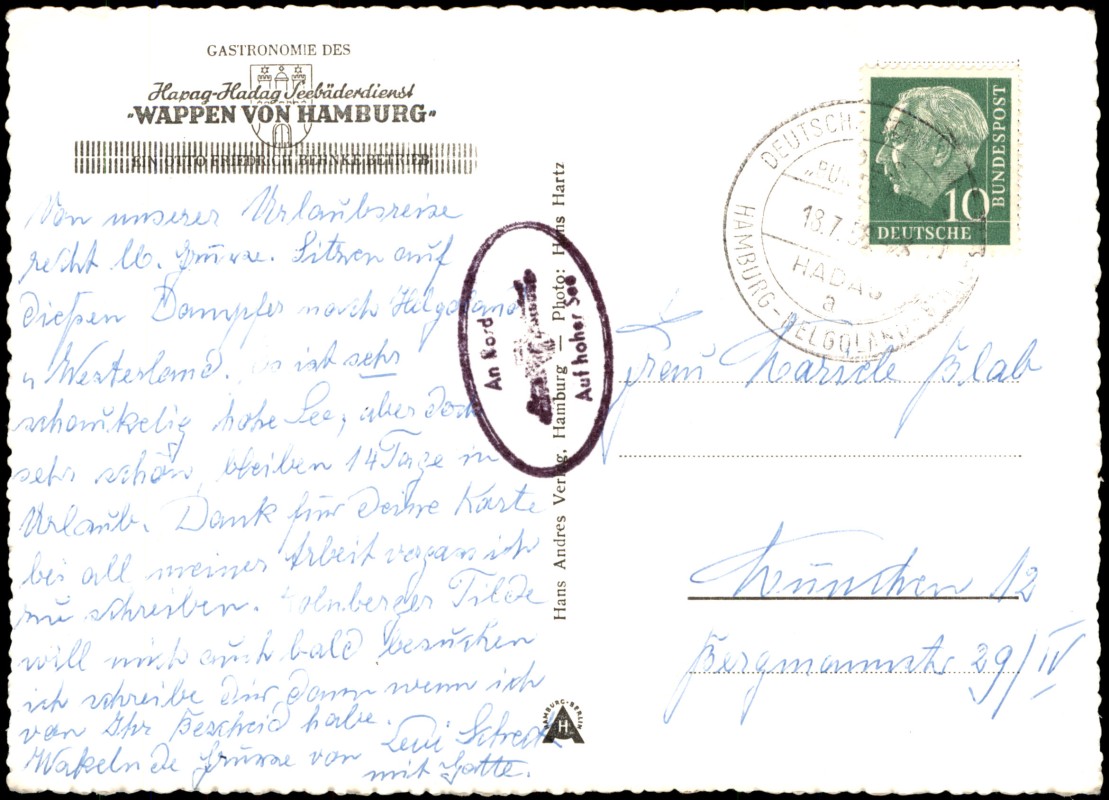 GASTRONOMIE DES
Hapag-Hadag Seebäderdienst
"WAPPEN VON HAMBURG"
EIN OTTO FRIEDRICH BEHNKE BETRIEB
Von unserer Urlaubsreise
recht lb. Grüsse. Sitzen auf
diesen Dampfer nach Helgoland
u Westerland. Es ist sehr
schaukelig hohe See, aber doch
sehr schön, bleiben 14 Tage in
Urlaub. Dank für Deine Karte
bei all meiner Arbeit vergass ich
zu schreiben. Tilde
will mich auch bald besuchen
ich schreibe Dir, dann wenn ich
von Ihr Bescheid habe.
Wakelnde Grüsse von Leni
mit Gatte.
An Bord
Auf hoher See
Hans Andres Verlag, Hamburg — Photo: Hans Hartz
HAMBURG-BERLIN
H
DEUTSCHE
18.7.
HADAG
a
HAMBURG-HELGOLAND
DEUTSCHE
BUNDESPOST
10
Frau Blab
München 12
Bergmannstr 29/IV